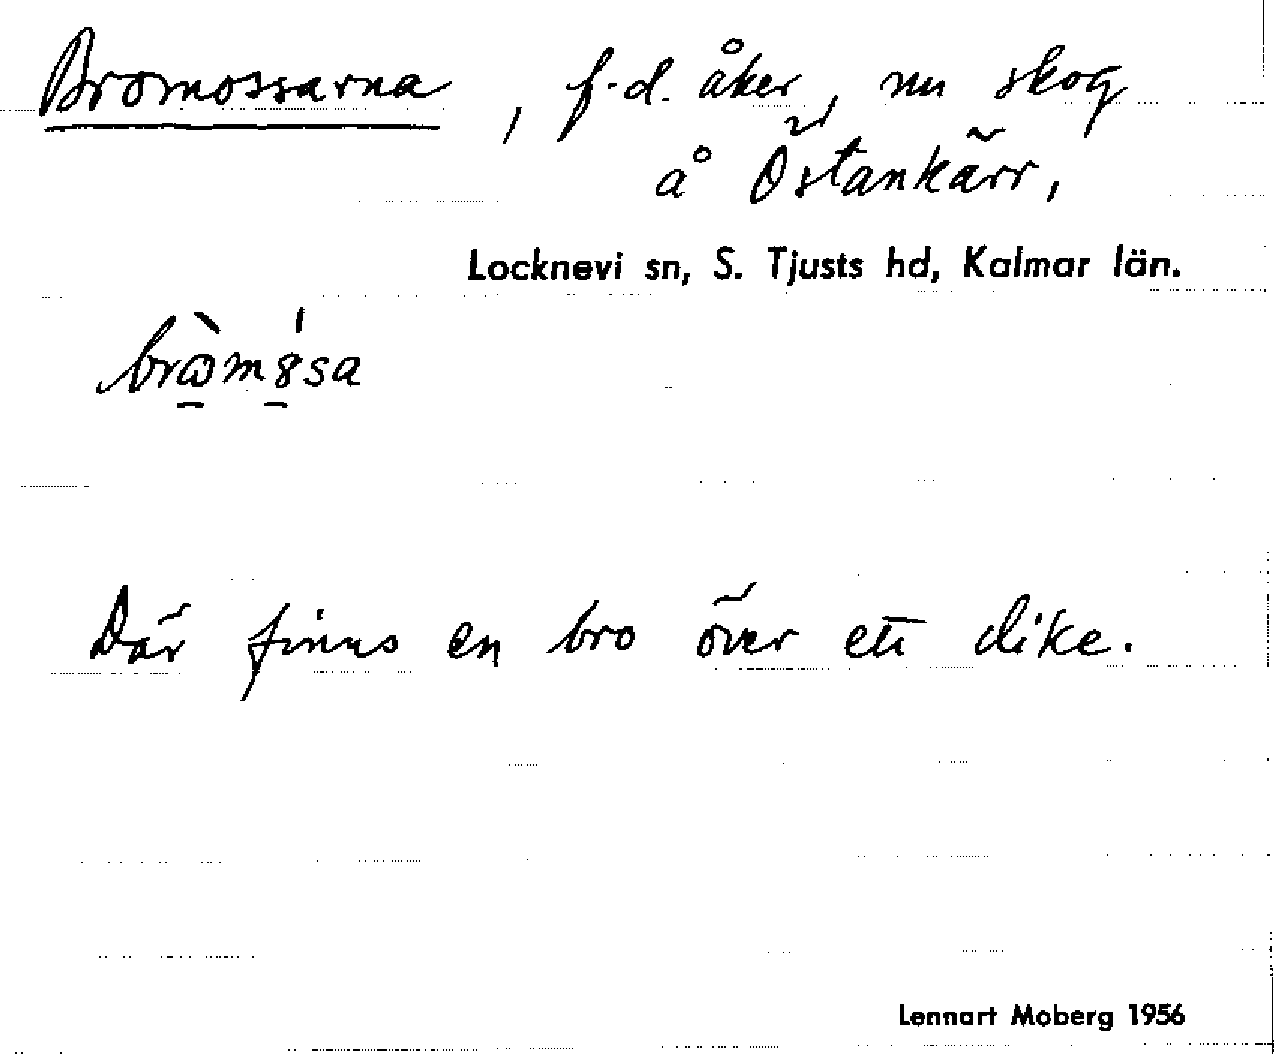 Bromossarna, f.d. åker, nu skog
å Östankärr,
Locknevi sn, S. Tjusts hd, Kalmar län.
Där finns en bro över ett dike.
Lennart Moberg 1956